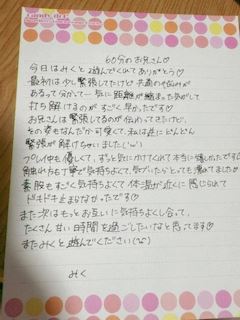 Candy Art
60分のお兄さん♡
今日はみくと遊んでくれてありがとう♡
最初は少し緊張してたけど 共通の悩みが
あるって分かって一気に距離が縮まった気がして
打ち解けるのがすごく早かったです♡
お兄さんは緊張してるのが伝わってきたけど、
その姿もなんだか可愛くて、私は逆にどんどん
緊張が解けちゃいました(ω)
プレイ中も優しくて、ずっと気にかけてくれて本当に嬉しかったです♡
触れ方も丁寧で気持ちよくて、気づいたらとっても濡れてました♡
素股もすごく気持ちよくて 体温が近くに感じられて
ドキドキ止まらなかったです♡
また次はもっとお互いに気持ちよくし合って、
たくさん甘い時間を過ごしたいなと思ってます♡
またみくと遊んでください(ω)
みく